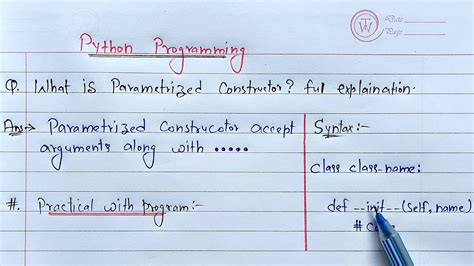 TW
Date
Page
Python Programming
Q. What is Parametrized Constructor? full explaination.
Ans→ Parametrized Construcotor accept
arguments along with .....
#. Practical with program:-
Syntax:-
class class-name:
def --init--(self, name)
#